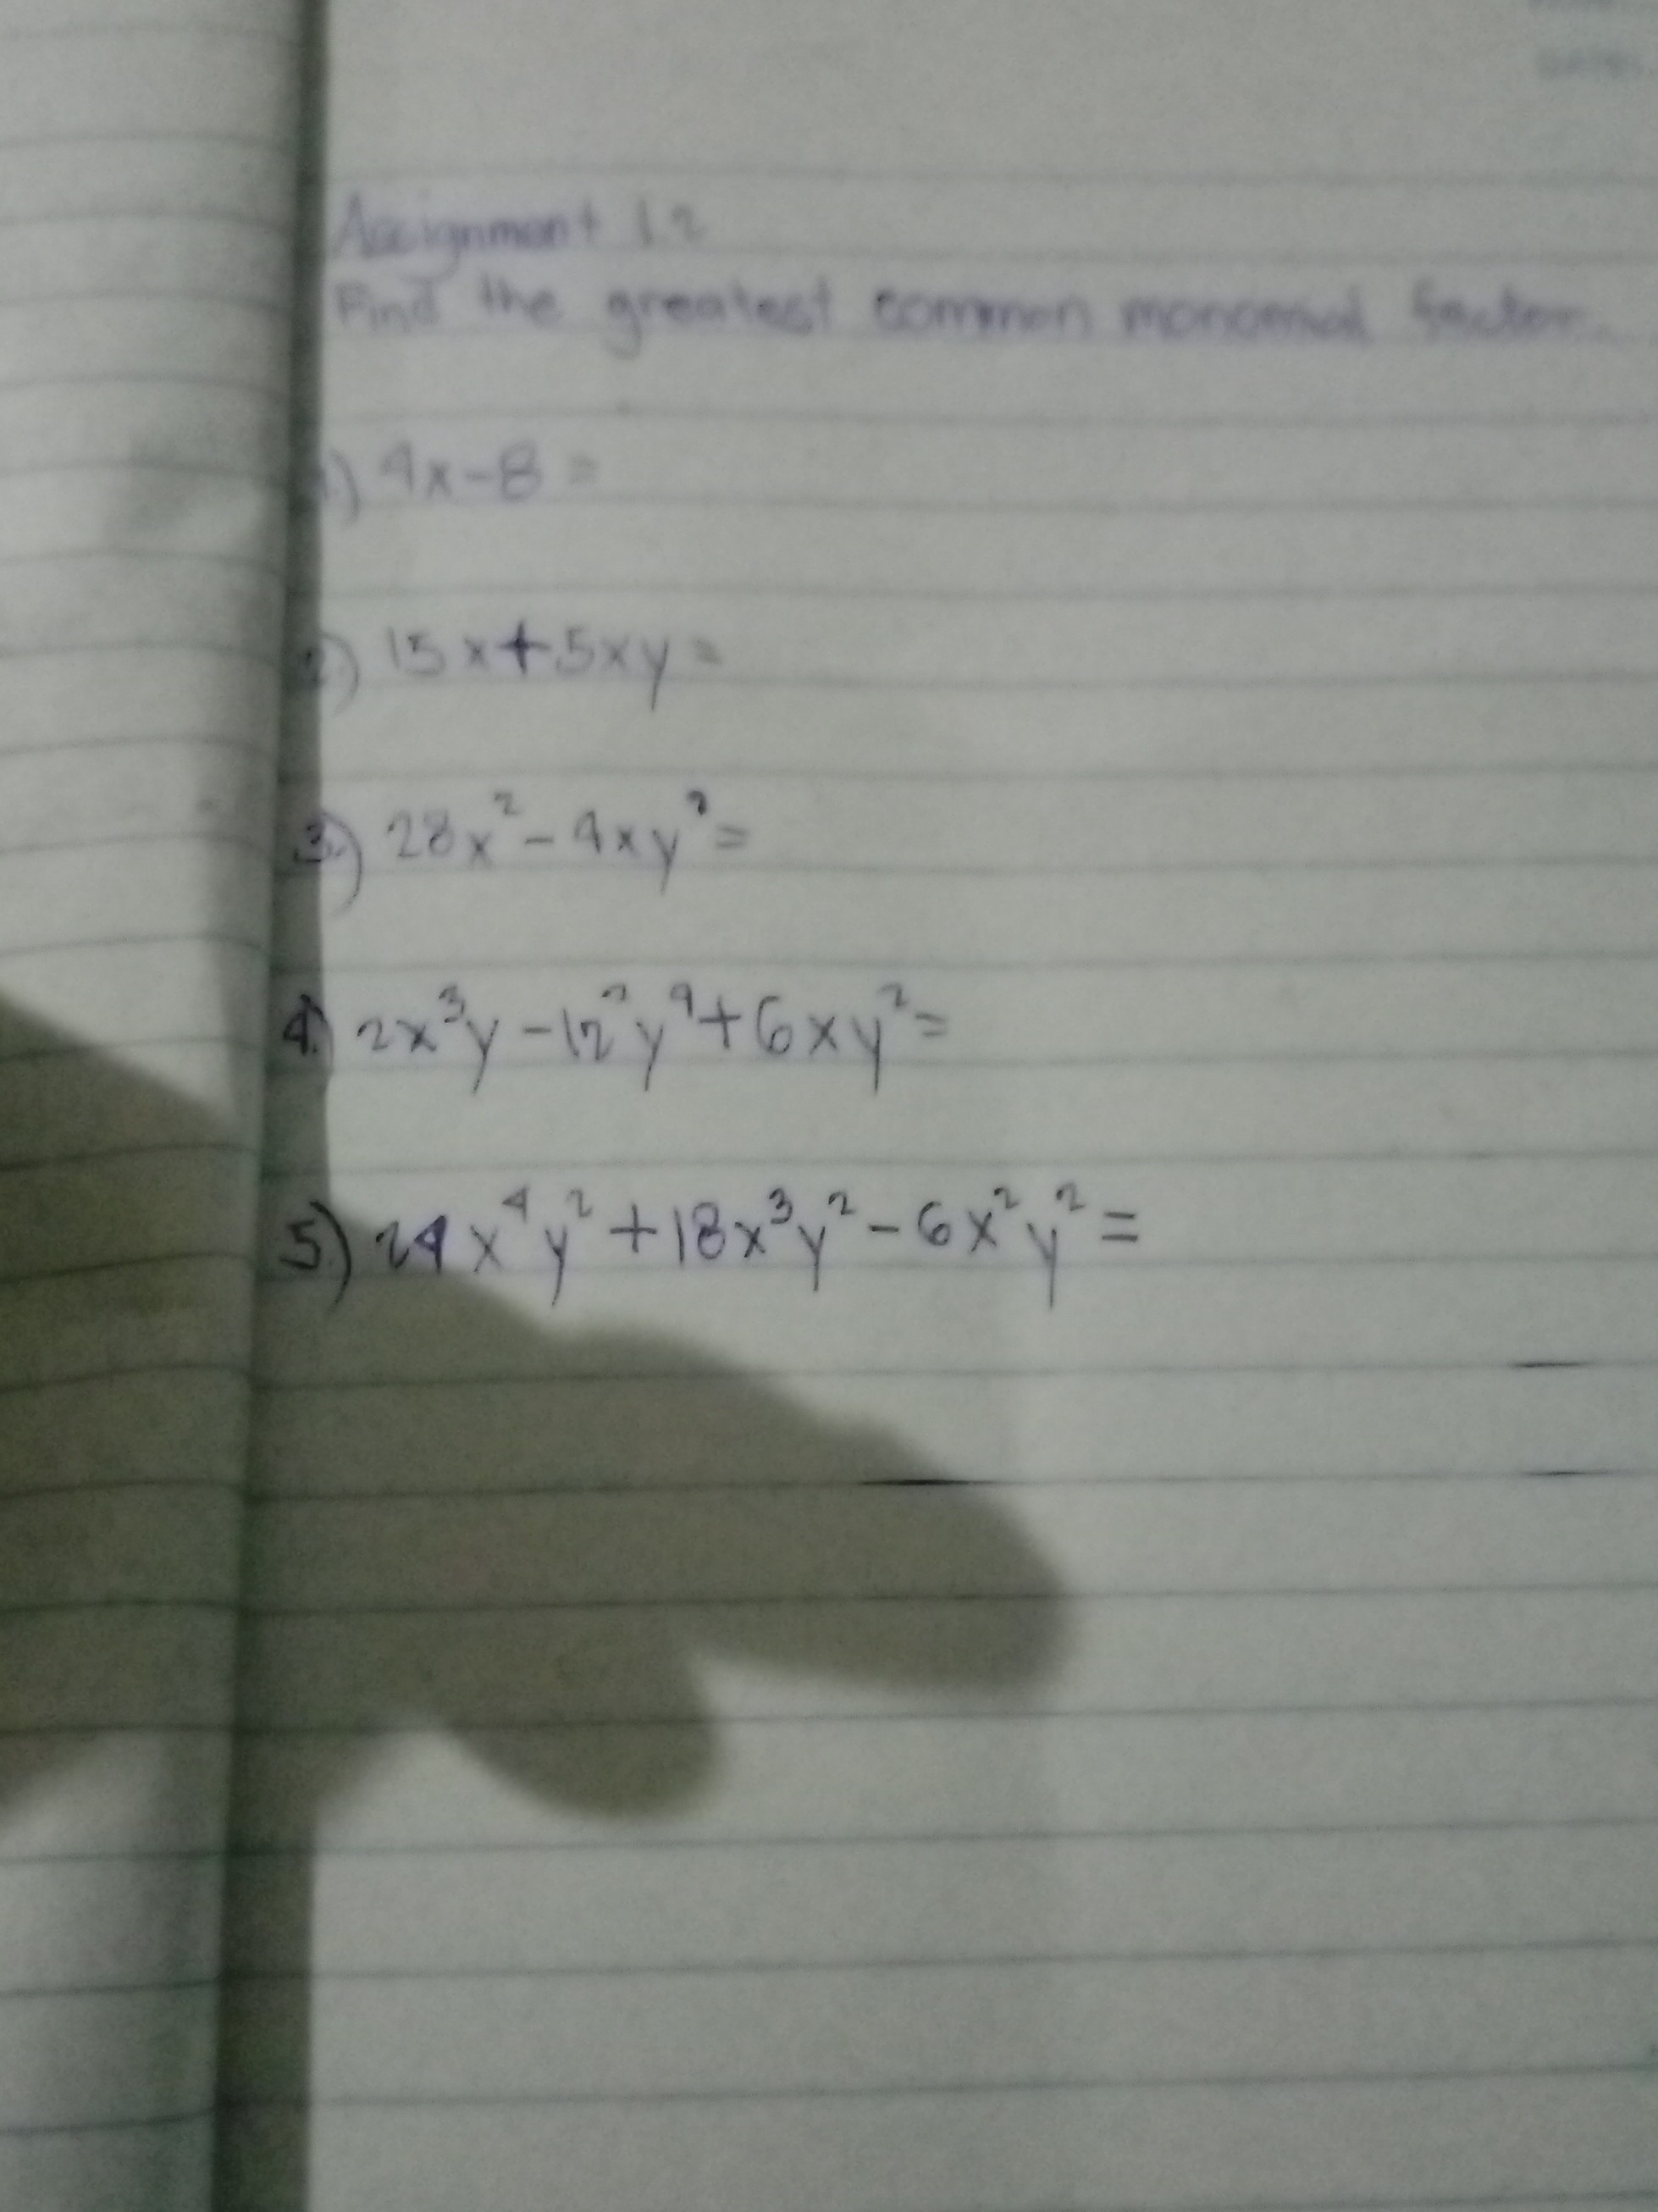 Assignment 1.2
Find the greatest common monomial factor.
1.) 4x-8=
2.) 15x+5xy=
3.) 28x²-4xy²=
4.) 2x³y-12²y⁴+6xy²=
5.) 24x⁴y²+18x³y²-6x²y²=